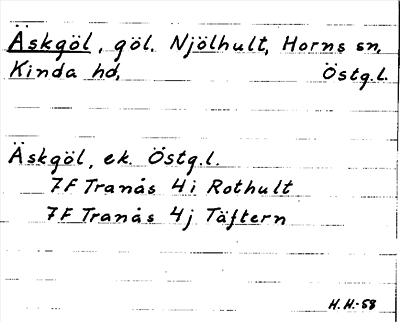 Äskgöl, göl. Njölhult, Horns sn,
Kinda hd, Östg.l.
Äskgöl, ek. Östg.l.
7F Tranås 4i Rothult
7F Tranås 4j Täftern
H.H.-58